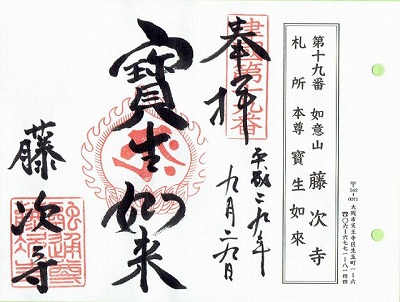 第十九番 如意山 藤次寺
札所 本尊 寶生如來
〒543-0073 大阪市天王寺区生玉町一ー六
☎〇六ー六七七一ー八一四四
奉拝
平成二九年
九月二九日
寶生如来
藤次寺